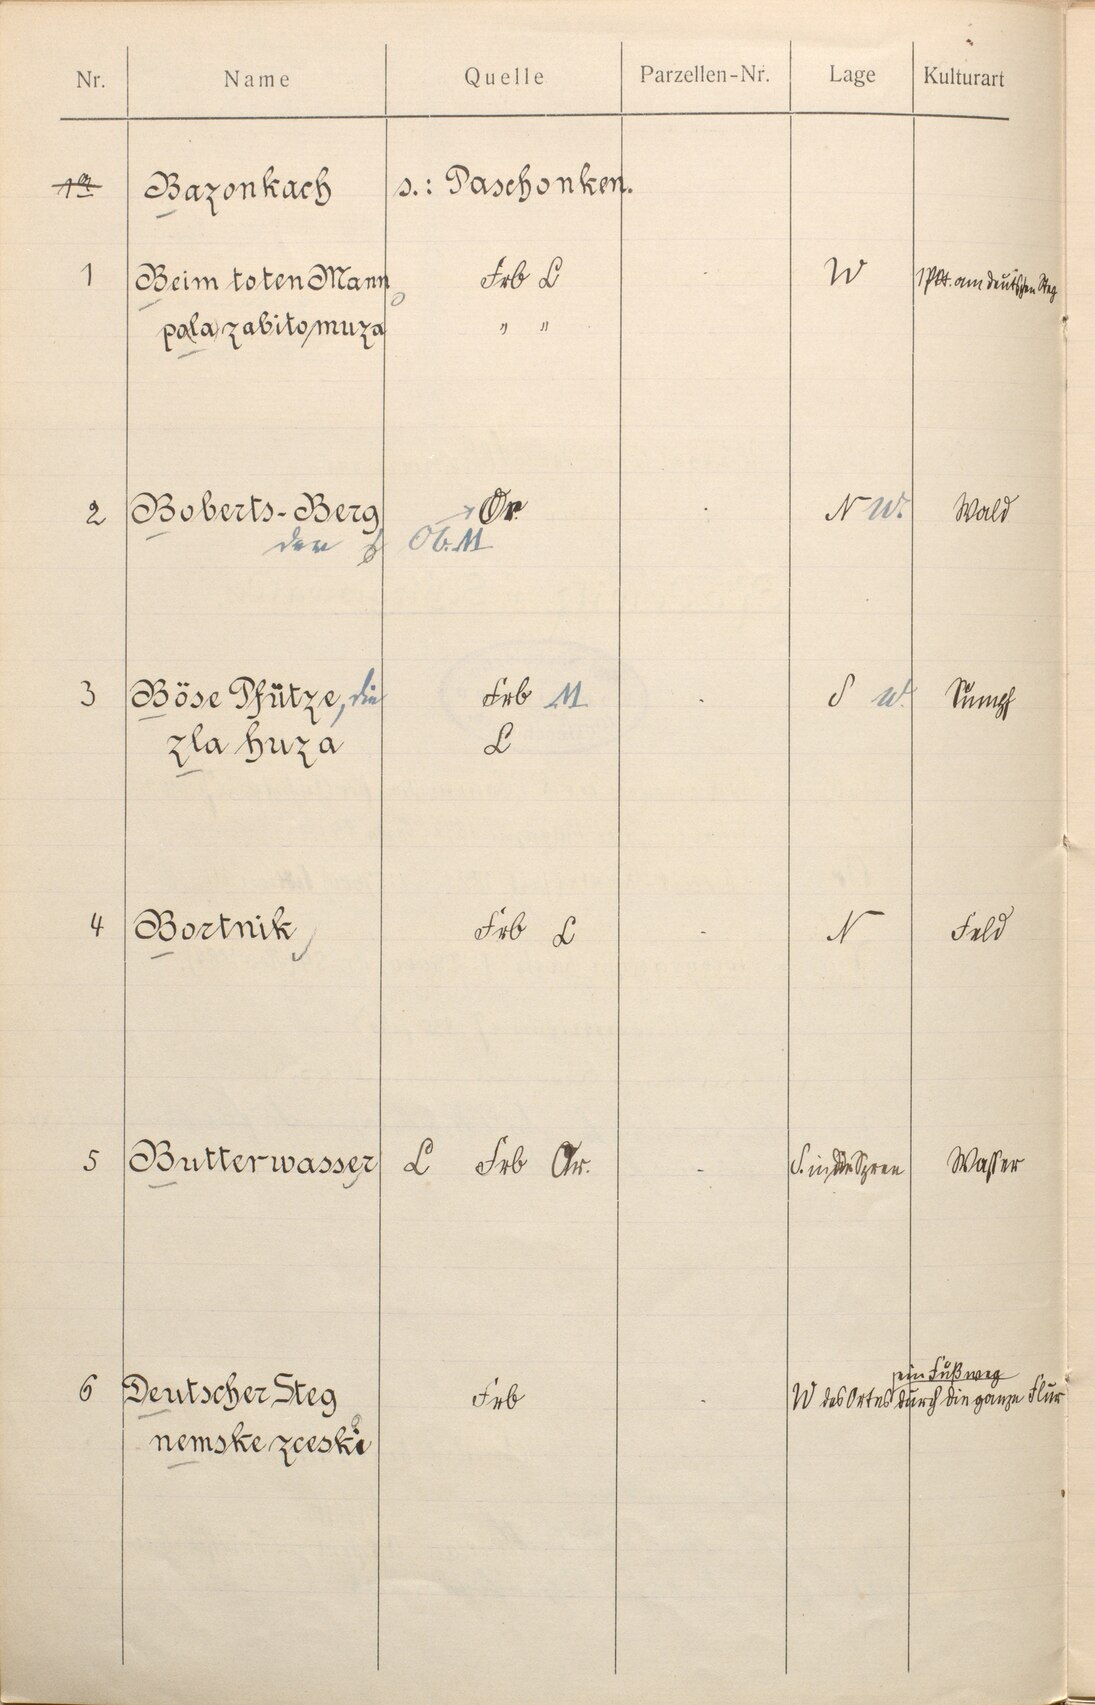 Nr. Name Quelle Parzellen-Nr. Lage Kulturart
1a Bazonkach s.: Paschonken.
1 Beim toten Mann Frb L - W 1 Pkt. am deutschen Steg
pola zabito muza " "
2 Boberts-Berg Or. - N W. Wald
der Ob. M
3 Böse Pfütze, die Frb M - S W. Sumpf
zla huza L
4 Bortnik Frb L - N Feld
5 Butterwasser L Frb Or. - S. in der Spree Wasser
ein Fußweg
6 Deutscher Steg Frb - W des Ortes durch die ganze Flur
nemske zceski